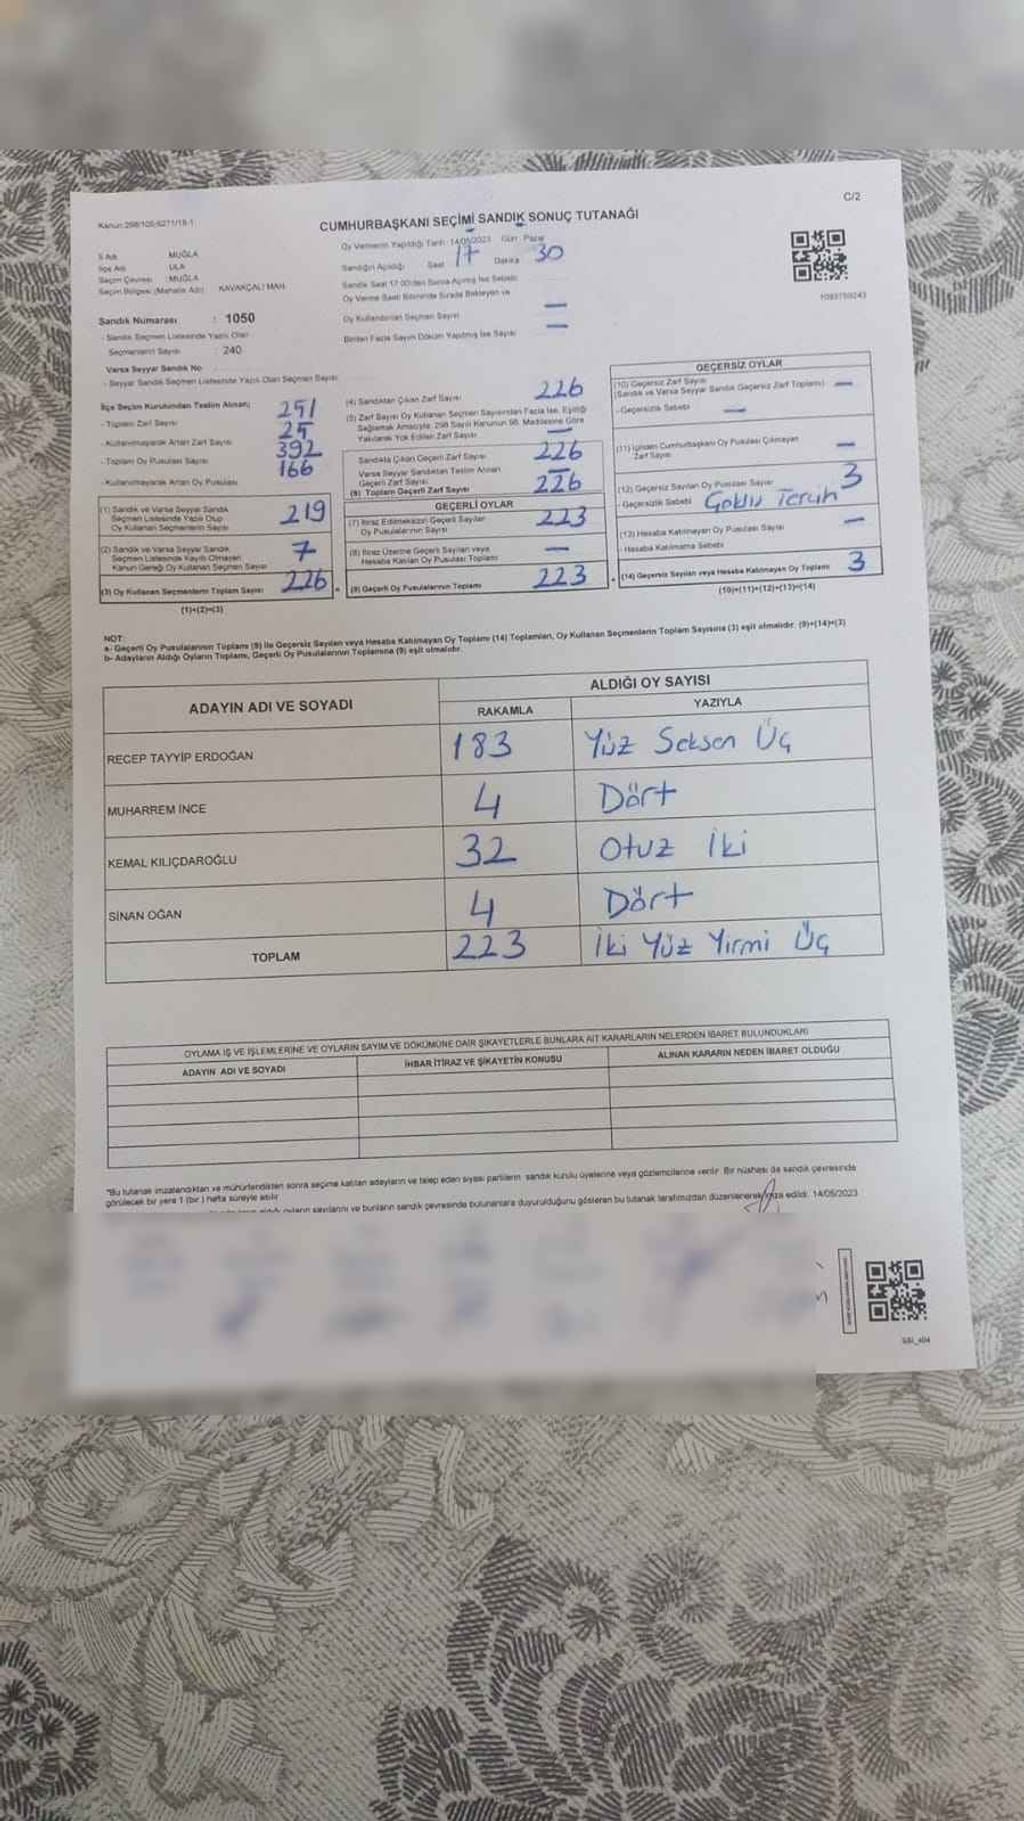 C/2
Kanun:298/105-6271/18-1
CUMHURBAŞKANI SEÇİMİ SANDIK SONUÇ TUTANAĞI
Oy Vermenin Yapıldığı Tarih: 14/05/2023 Gün: Pazar
İl Adı MUĞLA
İlçe Adı ULA
Seçim Çevresi : MUĞLA
Seçim Bölgesi (Mahalle Adı) KAVAKÇALI MAH.
Sandığın Açıldığı Saat 17 Dakika 30
Sandık Saat 17.00'den Sonra Açılmış İse Sebebi:
Oy Verme Saati Bitiminde Sırada Bekleyen ve
Oy Kullandırılan Seçmen Sayısı —
Birden Fazla Sayım Döküm Yapılmış İse Sayısı —
Sandık Numarası : 1050
- Sandık Seçmen Listesinde Yazılı Olan
Seçmenlerin Sayısı : 240
Varsa Seyyar Sandık No
- Seyyar Sandık Seçmen Listesinde Yazılı Olan Seçmen Sayısı
İlçe Seçim Kurulundan Teslim Alınan;
- Toplam Zarf Sayısı 251
- Kullanılmayarak Artan Zarf Sayısı 25
- Toplam Oy Pusulası Sayısı 392
- Kullanılmayarak Artan Oy Pusulası 166
(1) Sandık ve Varsa Seyyar Sandık
Seçmen Listesinde Yazılı Olup
Oy Kullanan Seçmenlerin Sayısı 219
(2) Sandık ve Varsa Seyyar Sandık
Seçmen Listesinde Kayıtlı Olmayan
Kanun Gereği Oy Kullanan Seçmen Sayısı 7
(3) Oy Kullanan Seçmenlerin Toplam Sayısı 226
(1)+(2)=(3)
(4) Sandıktan Çıkan Zarf Sayısı 226
(5) Zarf Sayısı Oy Kullanan Seçmen Sayısından Fazla İse, Eşitliği
Sağlamak Amacıyla, 298 Sayılı Kanunun 98. Maddesine Göre
Yakılarak Yok Edilen Zarf Sayısı —
Sandıkta Çıkan Geçerli Zarf Sayısı 226
Varsa Seyyar Sandıktan Teslim Alınan
Geçerli Zarf Sayısı —
(6) Toplam Geçerli Zarf Sayısı 226
GEÇERLİ OYLAR
(7) İtiraz Edilmeksizin Geçerli Sayılan
Oy Pusulalarının Sayısı 223
(8) İtiraz Üzerine Geçerli Sayılan veya
Hesaba Katılan Oy Pusulası Toplamı —
(9) Geçerli Oy Pusulalarının Toplamı 223
GEÇERSİZ OYLAR
(10) Geçersiz Zarf Sayısı
(Sandık ve Varsa Seyyar Sandık Geçersiz Zarf Toplamı) —
- Geçersizlik Sebebi —
(11) İçinden Cumhurbaşkanı Oy Pusulası Çıkmayan
Zarf Sayısı —
(12) Geçersiz Sayılan Oy Pusulası Sayısı 3
- Geçersizlik Sebebi Goklu Tercih
(13) Hesaba Katılmayan Oy Pusulası Sayısı —
- Hesaba Katılmama Sebebi
(14) Geçersiz Sayılan veya Hesaba Katılmayan Oy Toplamı 3
(10)+(11)+(12)+(13)=(14)
NOT:
a- Geçerli Oy Pusulalarının Toplamı (9) ile Geçersiz Sayılan veya Hesaba Katılmayan Oy Toplamı (14) Toplamları, Oy Kullanan Seçmenlerin Toplam Sayısına (3) eşit olmalıdır. (9)+(14)=(3)
b- Adayların Aldığı Oyların Toplamı, Geçerli Oy Pusulalarının Toplamına (9) eşit olmalıdır.
ADAYIN ADI VE SOYADI ALDIĞI OY SAYISI
RAKAMLA YAZIYLA
RECEP TAYYİP ERDOĞAN 183 Yüz Seksen Üç
MUHARREM İNCE 4 Dört
KEMAL KILIÇDAROĞLU 32 Otuz İki
SİNAN OĞAN 4 Dört
TOPLAM 223 İki Yüz Yirmi Üç
OYLAMA İŞ VE İŞLEMLERİNE VE OYLARIN SAYIM VE DÖKÜMÜNE DAİR ŞİKAYETLERLE BUNLARA AİT KARARLARIN NELERDEN İBARET BULUNDUKLARI
ADAYIN ADI VE SOYADI İHBAR İTİRAZ VE ŞİKAYETİN KONUSU ALINAN KARARIN NEDEN İBARET OLDUĞU
"Bu tutanak imzalandıktan ve mühürlendikten sonra seçime katılan adayların ve talep eden siyasi partilerin sandık kurulu üyelerine veya gözlemcilerine verilir. Bir nüshası da sandık çevresinde
görülecek bir yere 1 (bir) hafta süreyle asılır
oyların sayılarını ve bunların sandık çevresinde bulunanlara duyurulduğunu gösteren bu tutanak tarafımızdan düzenlenerek imza edildi. 14/05/2023